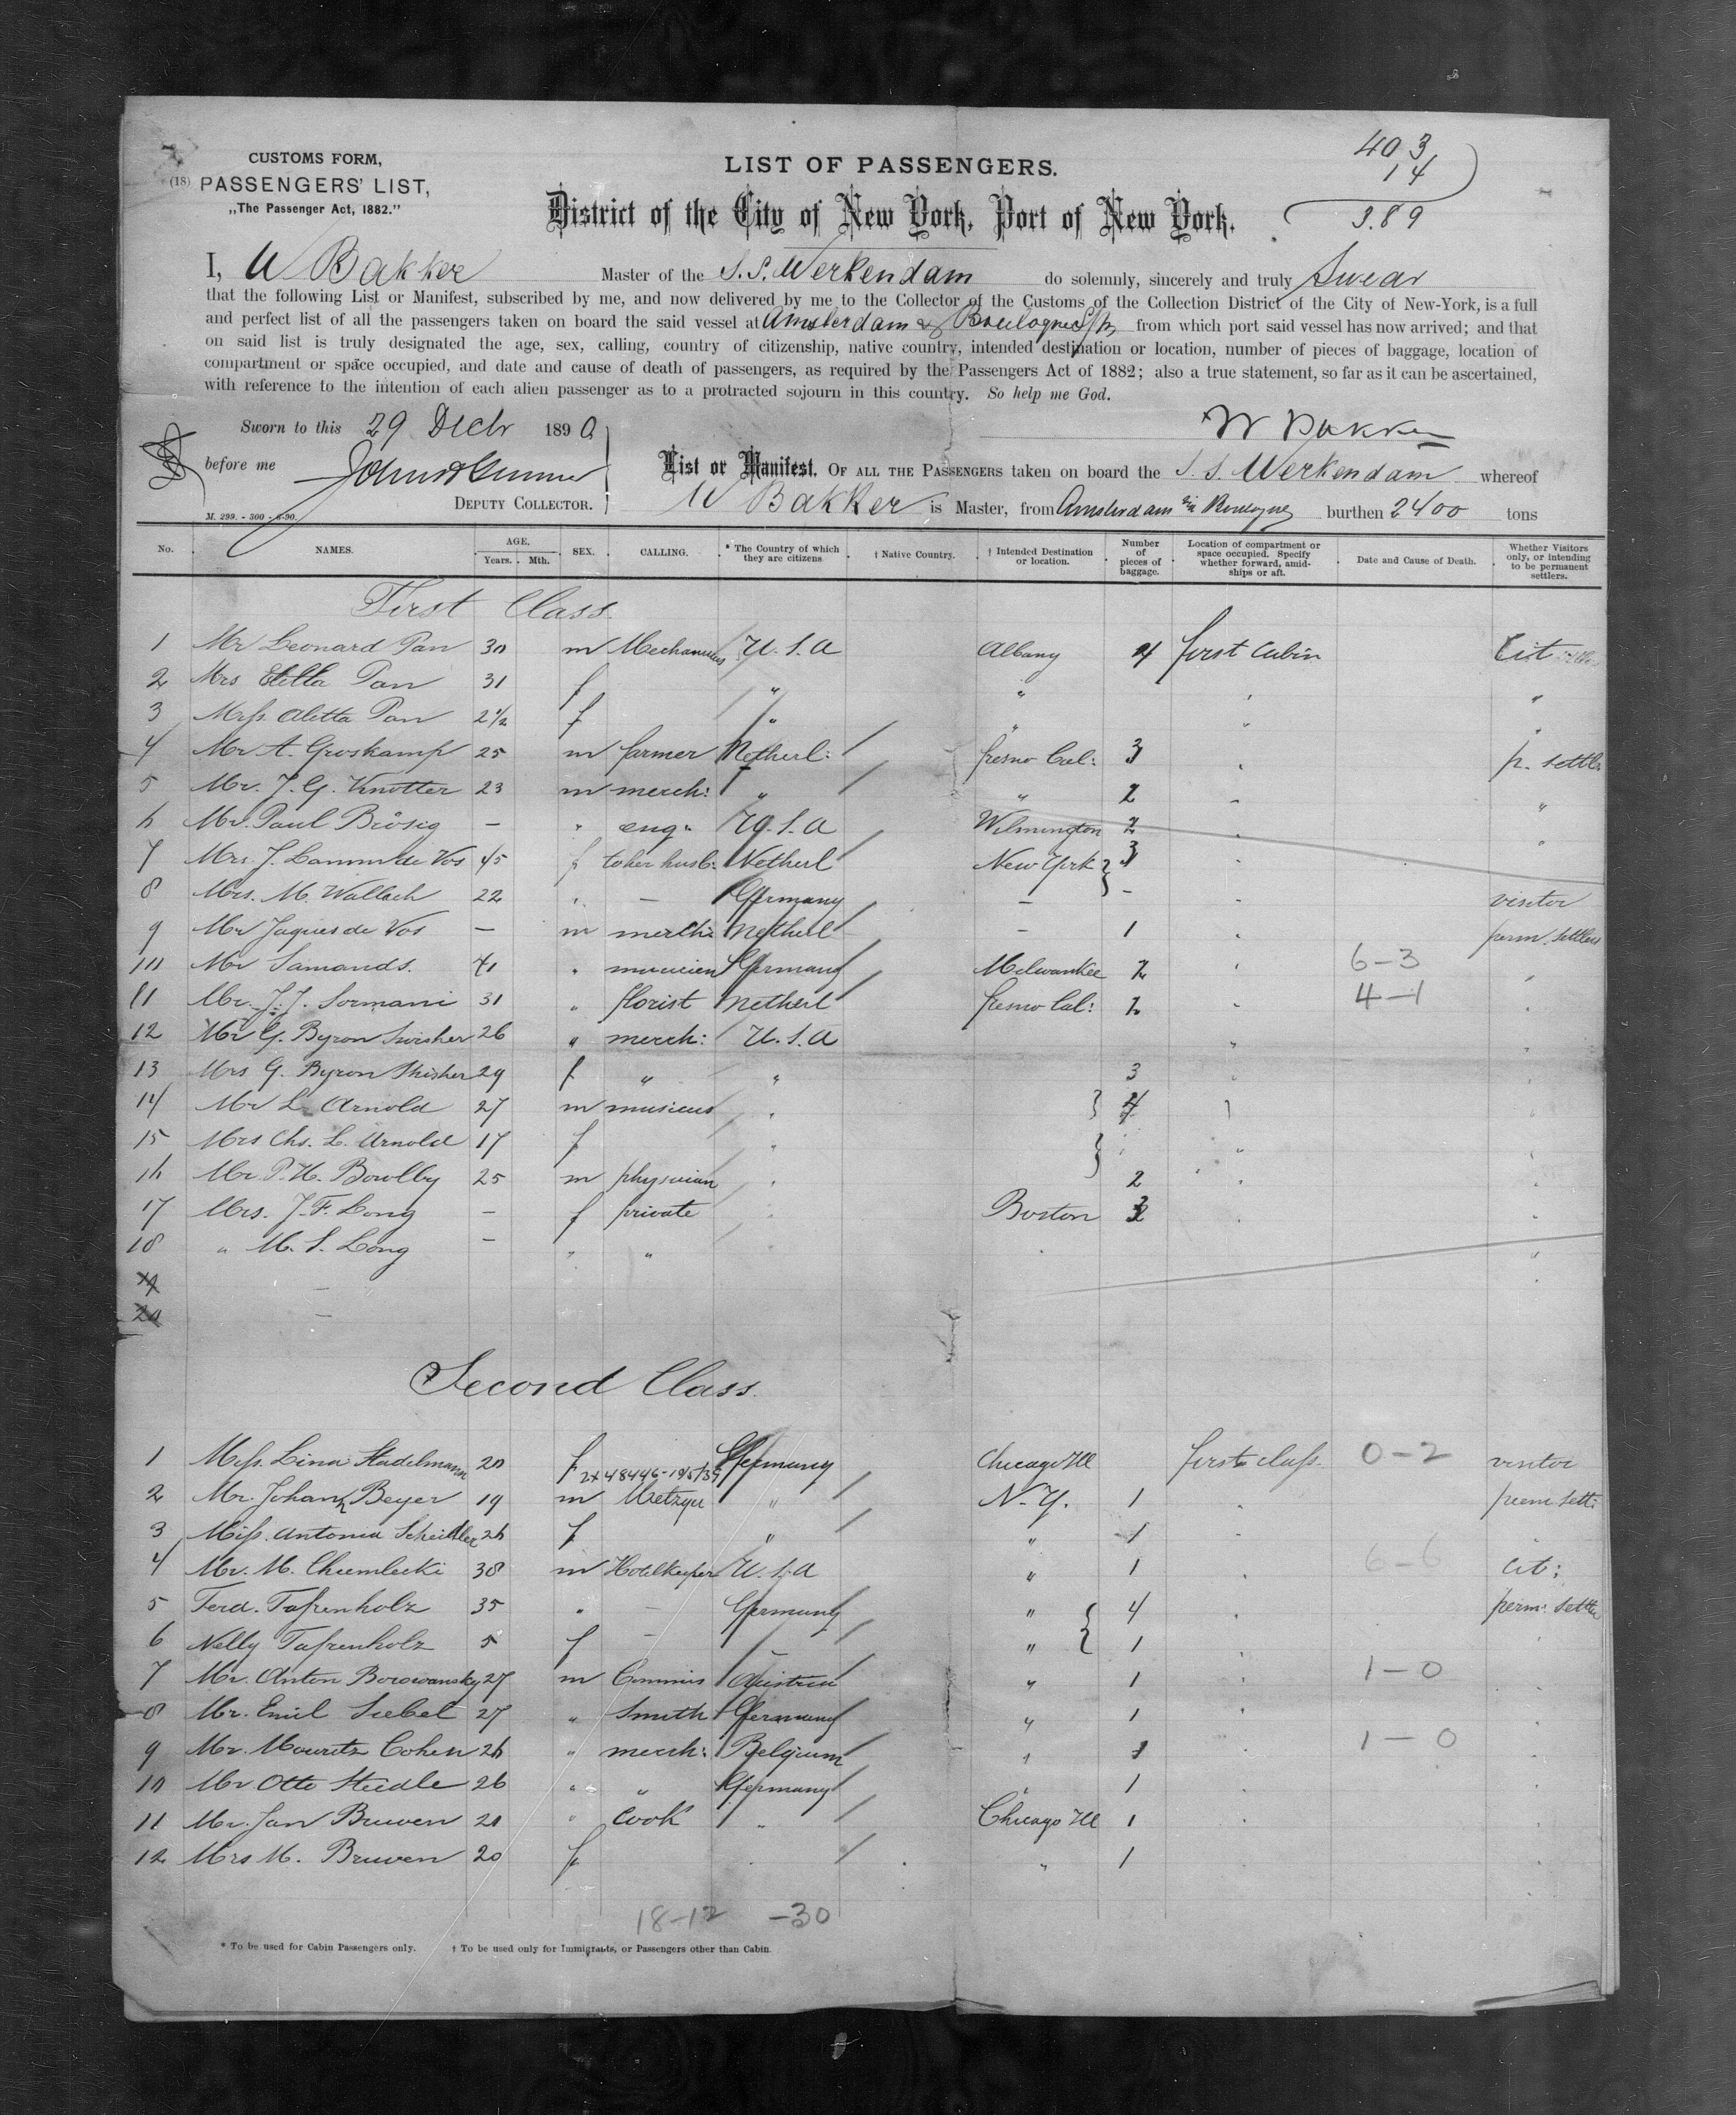 403
14
389
CUSTOMS FORM,
(18) PASSENGERS' LIST,
„The Passenger Act, 1882."
LIST OF PASSENGERS.
District of the City of New York, Port of New York.
I, W Bakker Master of the S.S. Werkendam do solemnly, sincerely and truly Swear
that the following List or Manifest, subscribed by me, and now delivered by me to the Collector of the Customs of the Collection District of the City of New-York, is a full
and perfect list of all the passengers taken on board the said vessel at Amsterdam & Boulogne from which port said vessel has now arrived; and that
on said list is truly designated the age, sex, calling, country of citizenship, native country, intended destination or location, number of pieces of baggage, location of
compartment or space occupied, and date and cause of death of passengers, as required by the Passengers Act of 1882; also a true statement, so far as it can be ascertained,
with reference to the intention of each alien passenger as to a protracted sojourn in this country. So help me God.
W Bakker
Sworn to this 29 Decbr 1890
before me
DEPUTY COLLECTOR.
List or Manifest, OF ALL THE PASSENGERS taken on board the S.S. Werkendam whereof
W Bakker is Master, from Amsterdam via Boulogne burthen 2400 tons
M. 299. - 300 - 6-90.
No. NAMES. AGE. Years. Mth. SEX. CALLING. * The Country of which they are citizens † Native Country. † Intended Destination or location. Number of pieces of baggage. Location of compartment or space occupied. Specify whether forward, amidships or aft. Date and Cause of Death. Whether Visitors only, or intending to be permanent settlers.
First Class.
1 Mr Leonard Pan 30 m U.S.A Albany 4 first Cabin Cit
2 Mrs Pan 31 f " " "
3 Miss Aletta Pan 2 1/2 f " " " "
4 Mr A. Groskamp 25 m farmer Netherl: fresno Cal: 3 p. settl
5 Mr. J. G. Knotter 23 m merch: " " 2 "
6 Mr. Paul Brösig — " eng: U.S.A Wilmington 2 "
7 Mrs. J. de Vos 45 f to her husb: Netherl New York 3
8 Mrs. M. Wallach 22 " — Germany — - visitor
9 Mr Jaques de Vos — m merch: Netherl — 1 perm. settlers
10 Mr Samands. 41 " Germany Milwaukee 2 6-3
11 Mr. J. J. Sormani 31 " florist Netherl fresno Cal: 2 4-1
12 Mr G. Byron Swisher 26 " merch: U.S.A
13 Mrs G. Byron 29 f " " 3
14 Mr L. Arnold 27 m musicus " 4
15 Mrs Chs. L. Arnold 17 f "
16 Mr. P. H. Bowlby 25 m physician " 2
17 Mrs. J. F. Long — f private " Boston
18 " M. S. Long — " " "
19 —
20 —
Second Class.
1 Miss. Lina Stadelmann 20 f Germany Chicago Ill first class. 0-2 visitor
2 Mr. Johann Beyer 19 m Metzger " N.Y. 1 perm sett:
3 Miss. Antonia Scheidler 26 f " " 1
4 Mr. M. 38 m Hotelkeeper U.S.A " 1 6-6 cit:
5 Ferd. Tafrenholz 35 " — Germany " 4 perm: settle
6 Nelly Tafrenholz 5 f — - " 1
7 Mr. Anton Borowansky 27 m Commis Austria " 1 1-0
8 Mr. Emil Siebel 27 " Smith Germany " 1
9 Mr. Mouritz Cohen 26 " merch: Belgium " 1 1-0
10 Mr Otto Steidle 26 " " Germany " 1
11 Mr. Jan Bruven 20 " Cook " Chicago Ill 1
12 Mrs M. Bruven 20 f " " 1
18-12 -30
* To be used for Cabin Passengers only. † To be used only for Immigrants, or Passengers other than Cabin.